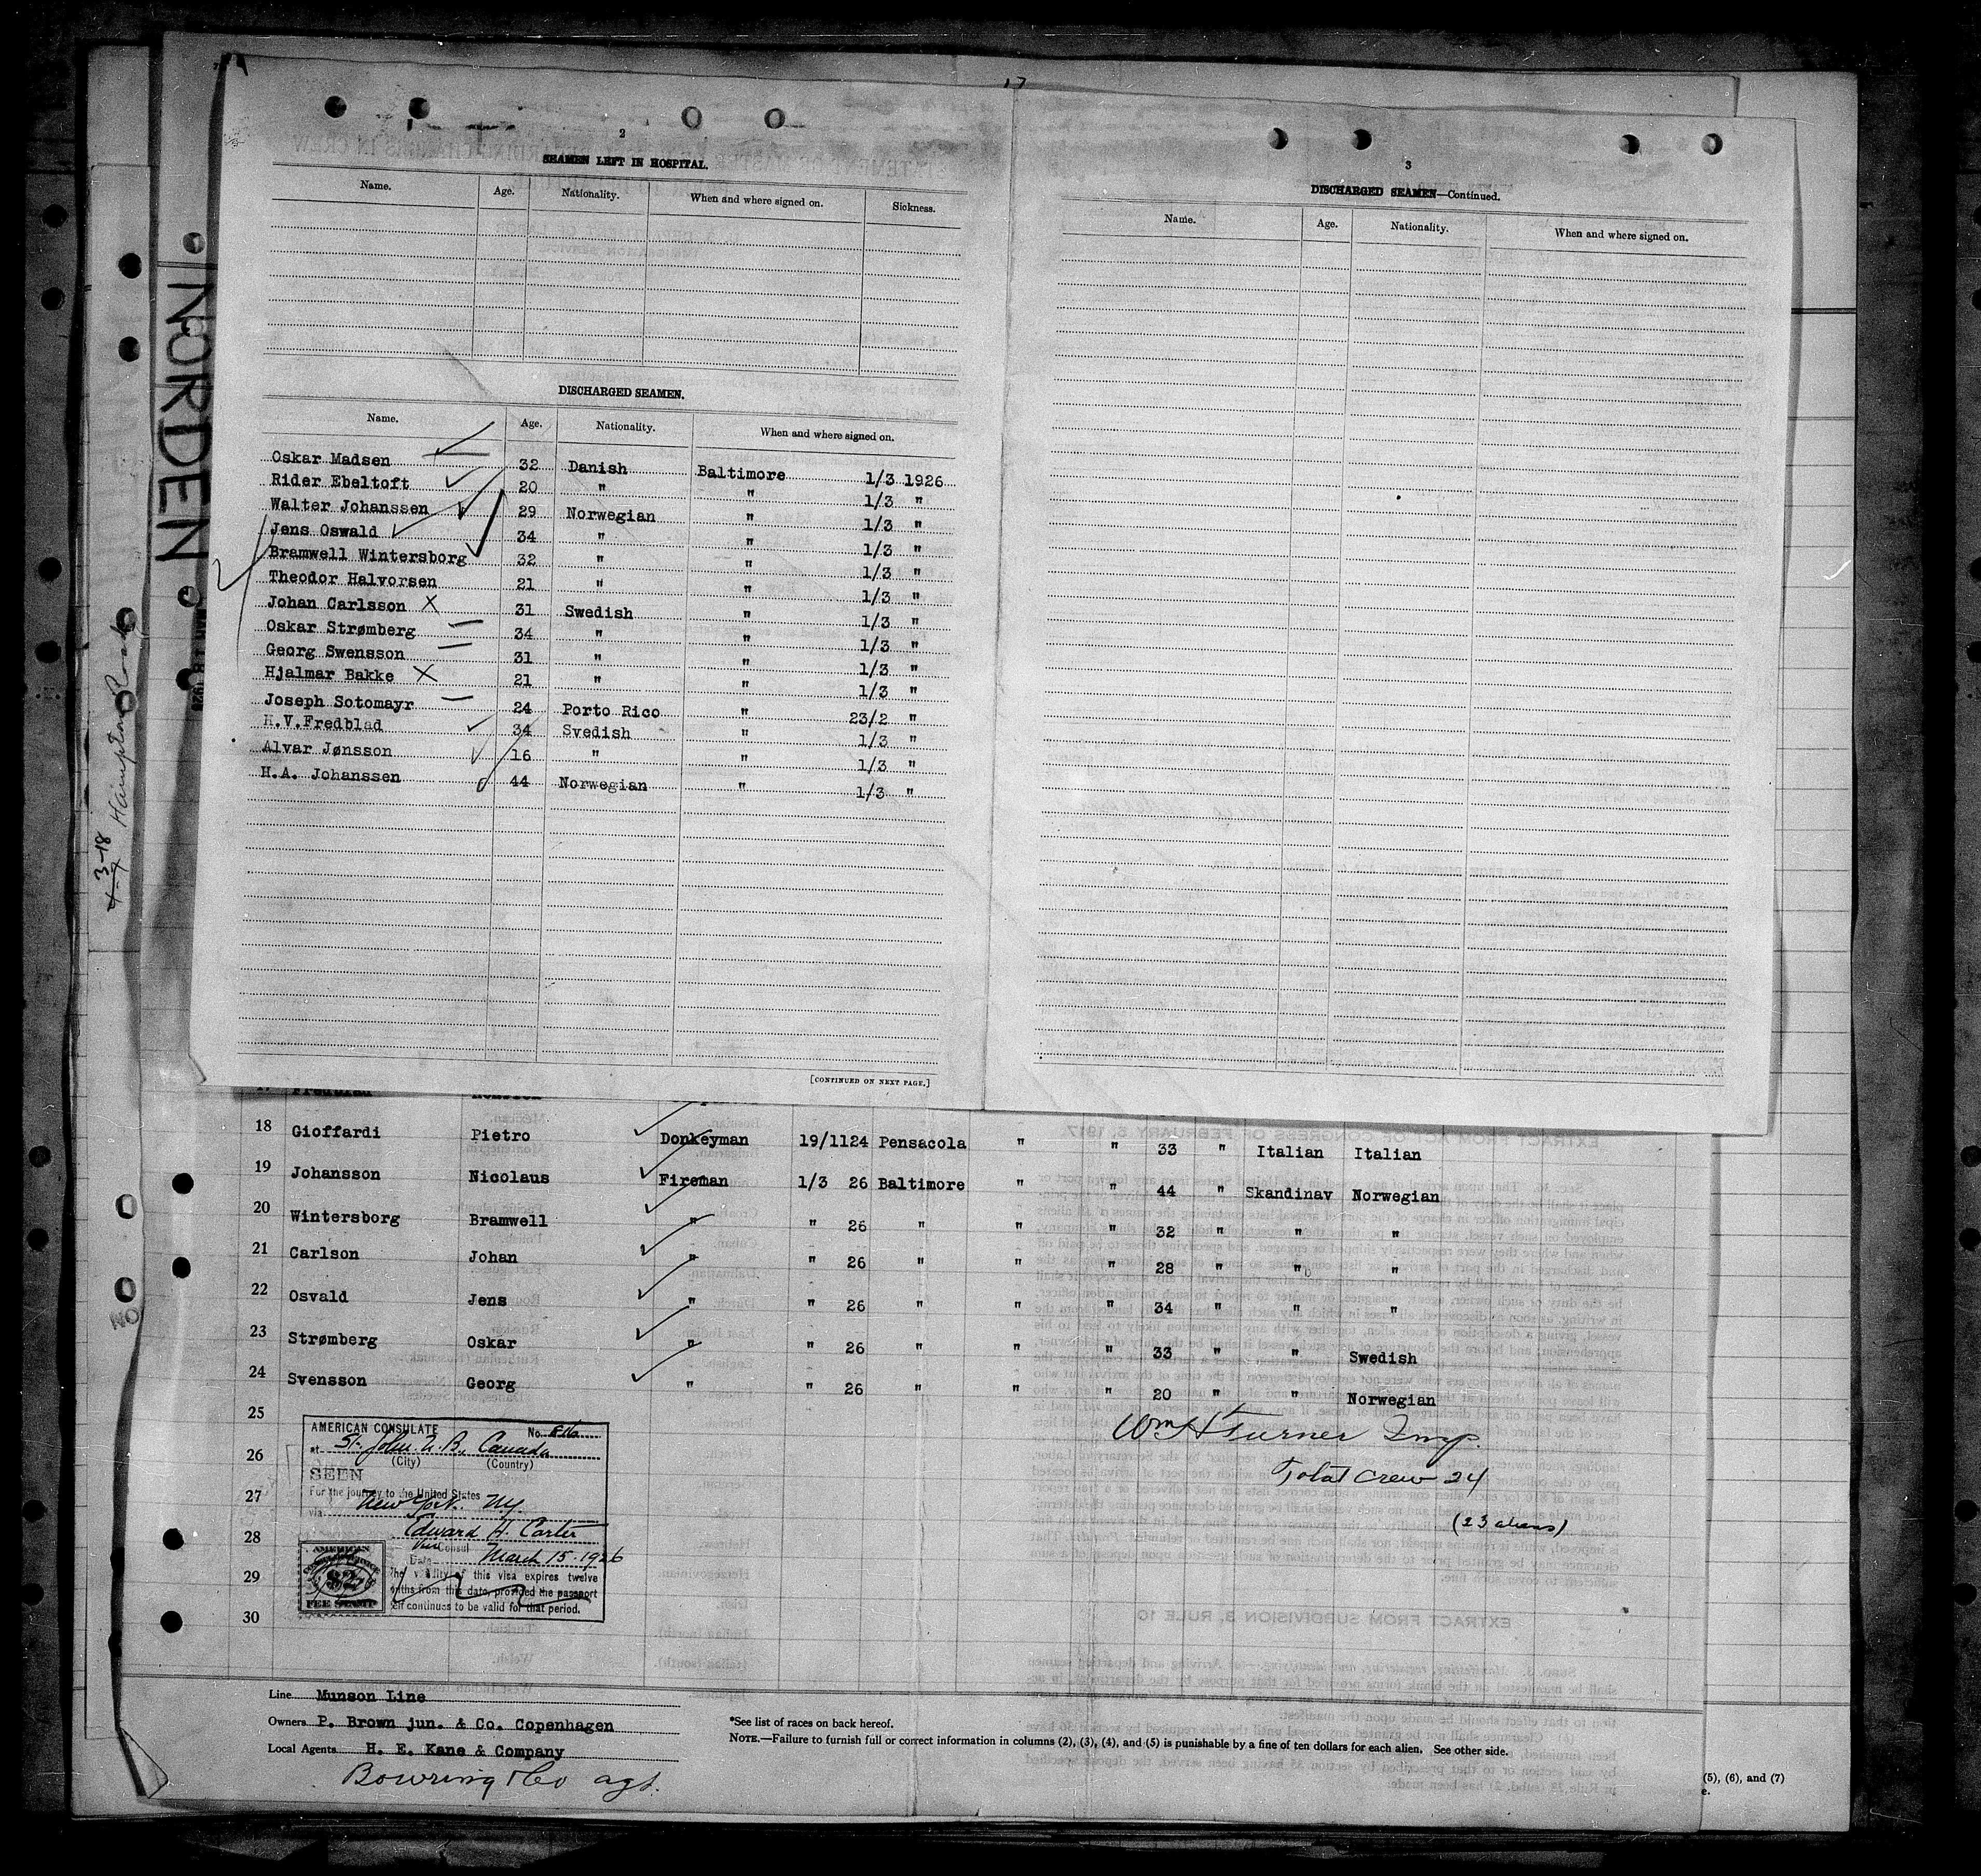 17
2
SEAMEN LEFT IN HOSPITAL.
Name. Age. Nationality. When and where signed on. Sickness.
DISCHARGED SEAMEN.
Name. Age. Nationality. When and where signed on.
Oskar Madsen 32 Danish Baltimore 1/3 1926
Rider Ebeltoft 20 " " 1/3 "
Walter Johanssen 29 Norwegian " 1/3 "
Jens Oswald 34 " " 1/3 "
Bramwell Wintersborg 32 " " 1/3 "
Theodor Halvorsen 21 " " 1/3 "
Johan Carlsson X 31 Swedish " 1/3 "
Oskar Strømberg 34 " " 1/3 "
Georg Swensson 31 " " 1/3 "
Hjalmar Bakke X 21 " " 1/3 "
Joseph Sotomayr 24 Porto Rico " 23/2 "
H.V.Fredblad 34 Svedish " 1/3 "
Alvar Jønsson 16 " " 1/3 "
H.A. Johanssen 44 Norwegian " 1/3 "
[CONTINUED ON NEXT PAGE.]
3
DISCHARGED SEAMEN—Continued.
Name. Age. Nationality. When and where signed on.
NORDEN
3-18
Hampton
17 Fredblad
18 Gioffardi Pietro Donkeyman 19/1124 Pensacola " " 33 " Italian Italian
19 Johansson Nicolaus Fireman 1/3 26 Baltimore " " 44 " Skandinav Norwegian
20 Wintersborg Bramwell " " 26 " " " 32 " " "
21 Carlson Johan " " 26 " " " 28 " " "
22 Osvald Jens " " 26 " " " 34 " " "
23 Strømberg Oskar " " 26 " " " 33 " " Swedish
24 Svensson Georg " " 26 " " " 20 " " Norwegian
25
26
27
28
29
30
AMERICAN CONSULATE No. 816
at St. John N.B., Canada
(City) (Country)
SEEN
For the journey to the United States
via New York. N.Y.
Edward H. Carter
Vice Consul
Date March 15-1926
The validity of this visa expires twelve
months from this date, provided the passport
itself continues to be valid for that period.
AMERICAN
$2
FEE STAMP
Wm H Turner Insp.
Total Crew 24
(23 aliens)
Line Munson Line
Owners P. Brown jun. & Co. Copenhagen
Local Agents H. E. Kane & Company
Bowring & Co agt.
*See list of races on back hereof.
NOTE.—Failure to furnish full or correct information in columns (2), (3), (4), and (5) is punishable by a fine of ten dollars for each alien. See other side.
(5), (6), and (7)
e.